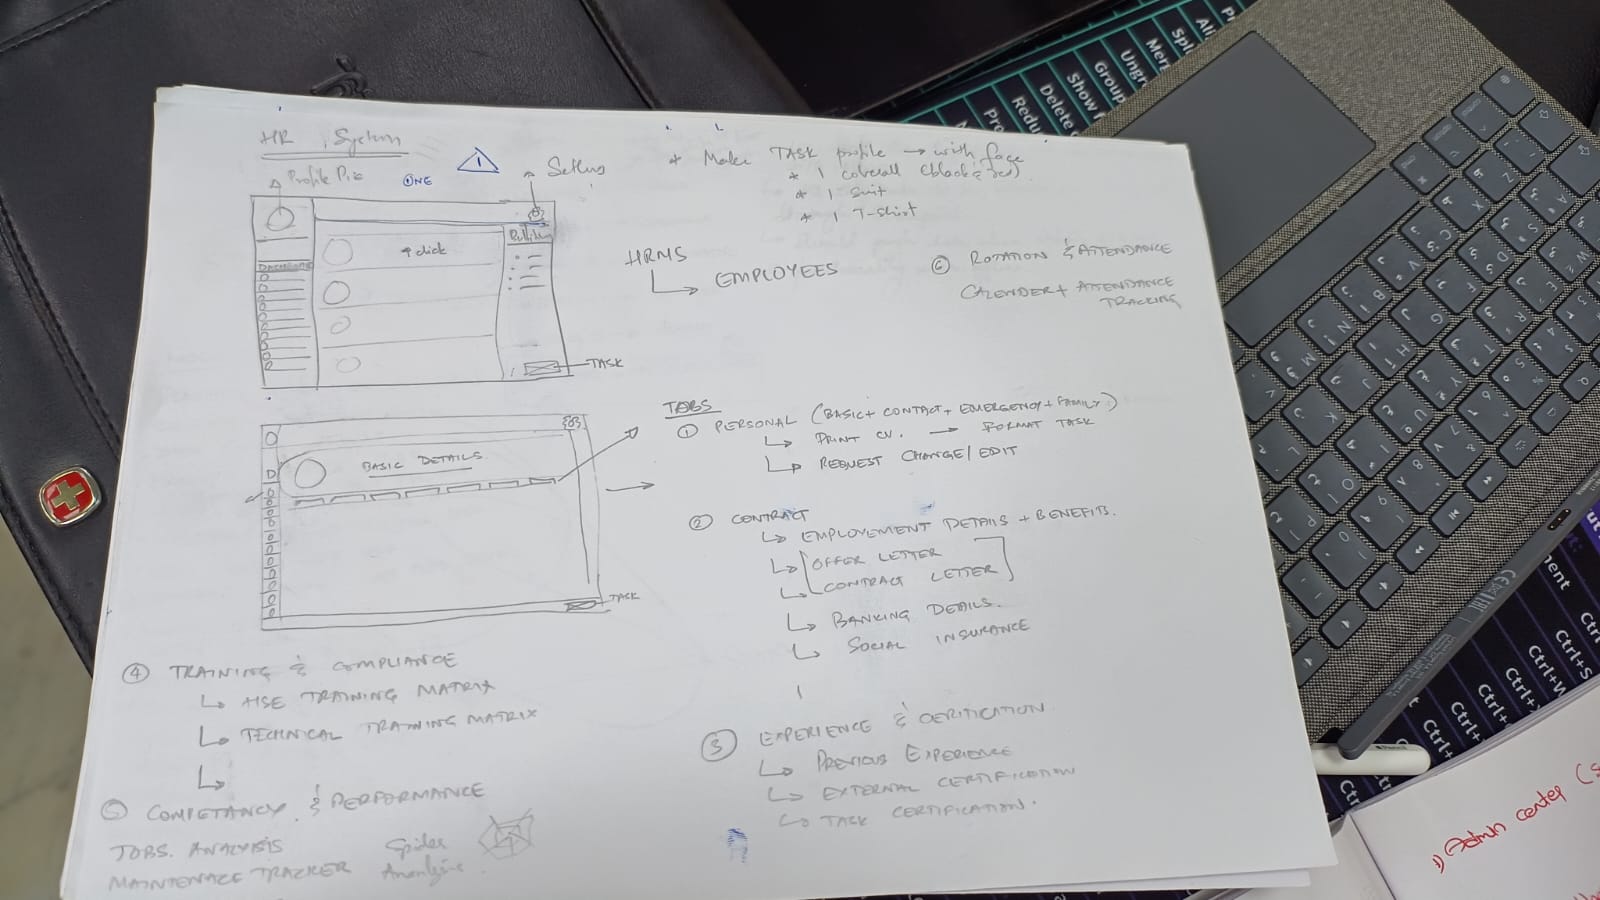 HR System
Profile Pic
ONE
1
Settings
* Make TASK profile → with face
* 1 coverall (black & red)
* 1 suit
* 1 T-shirt
click
TASK
HRMS
EMPLOYEES
⑥ ROTATION & ATTENDANCE
CALENDER + ATTENDANCE
TRACKING
BASIC DETAILS
TASK
TABS
① PERSONAL (BASIC + CONTACT + EMERGENCY + FAMILY)
PRINT CV. → FORMAT TASK
REQUEST CHANGE/EDIT
② CONTRACT
EMPLOYEMENT DETAILS + BENEFITS.
OFFER LETTER
CONTRACT LETTER
BANKING DETAILS.
SOCIAL INSURANCE
③ EXPERIENCE & CERTIFICATION
PREVIOUS EXPERIENCE
EXTERNAL CERTIFICATION
TASK CERTIFICATION.
④ TRAINING & COMPLIANCE
HSE TRAINING MATRIX
TECHNICAL TRAINING MATRIX
⑤ COMPETANCY & PERFORMANCE
JOBS. ANALYSIS
MAINTENACE TRACKER
Spider
1) Admin center
Delete
Show
Group
Ctrl+S
Ctrl+W